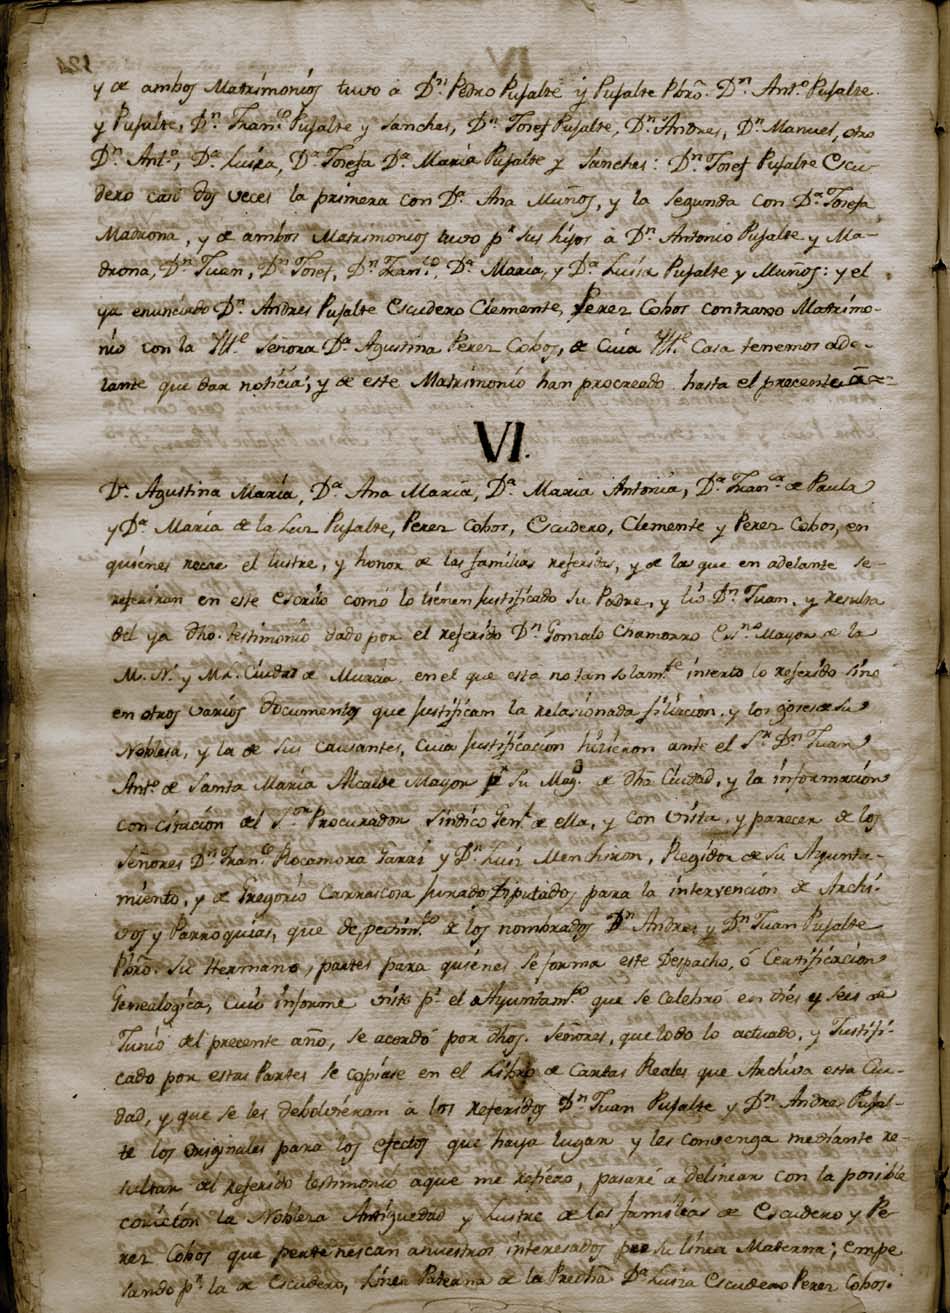 y de ambos Matrimonios tuvo à Dn. Pedro Pujalte y Pujalte Pbro. Dn. Anto. Pujalte
y Pujalte, Dn. Franco. Pujalte y Sanches, Dn. Josef Pujalte, Dn. Andres, Dn. Manuel, otro
Dn. Anto., Da. Luisa, Da. Josefa Da. Maria Pujalte y Sanches: Dn. Josef Pujalte Escu-
dero casó dos veces la primera con Da. Ana Muños, y la Segunda con Da. Josefa
Madrona, y de ambos Matrimonios tuvo pr. sus hijos à Dn. Antonio Pujalte y Ma-
drona, Dn. Juan, Dn. Josef, Dn. Franco., Da. Maria, y Da. Luisa Pujalte y Muños: y el
ya enunciado Dn. Andres Pujalte Escudero Clemente, Perez Cobos contraxo Matrimo-
nio con la Ille. Señora Da. Agustina Perez Cobos, de cuia Ille. Casa tenemos ade-
lante que dar noticia; y de este Matrimonio han procreado hasta el precente à =
VI.
Da. Agustina María, Da. Ana María, Da. Maria Antonia, Da. Franca. de Paula
y Da. María de la Luz Pujalte, Perez Cobos, Escudero, Clemente y Perez Cobos, en
quiénes recae el lustre, y honor de las familias referidas, y de las que en adelante se-
referirán en este escrito como lo tienen justificado su Padre, y tio Dn. Juan, y resulta
del ya dho. testimonio dado por el referido Dn. Gonzalo Chamorro Esno. Mayor de la
M. N. y M. L. Ciudad de Murcia, en el que está no tan solamte. inserto lo referido sino
en otros varios documentos que justifican la relasionada filiacion, y los gores de su
Noblesa, y la de sus causantes, cuia justificacion hisieron ante el Sr. Dn. Juan
Anto. de Santa Maria Alcalde Mayor pr. Su Magd. de dha Ciudad, y la informacion
con citacion del Sor. Procurador Sindico Genl. de ella, y con vista, y parecer de los
Señores Dn. Franco. Rocamora Garri y Dn. Luis Menchiron, Regidor de su Ayunta-
miento, y de Gregorio Carrascosa jurado Diputados para la intervención de Archi-
vos y Parroquias, que de pedimto. de los nombrados Dn. Andres y Dn. Juan Pujalte
Pbro. su Hermano, partes para quiénes se forma este Despacho, ó Certificacion
Genealogica, cuio informe visto pr. el Ayuntamto. que se celebró en dies y seis de
Junio del precente año, se acordó por dhos. Señores, que todo lo actuado, y Justifi-
cado por estas Partes se copiase en el Libro de Cartas Reales que Archiva esta Ciu-
dad, y que se les debolvieran à los referidos Dn. Juan Pujalte y Dn. Andres Pujal-
te los originales para los efectos que haya lugar y les convenga mediante re-
sultar del referido testimonio aque me refiero, pasaré à delinear con la posible
concicion la Noblesa Antiguedad y Lustre de las familias de Escudero y Pe-
rez Cobos que pertenescan anuestros interesados por su linea Materna; empe
sando pr. la de Escudero, Linea Paterna de la Predha Da. Luisa Escudero Perez Cobos.